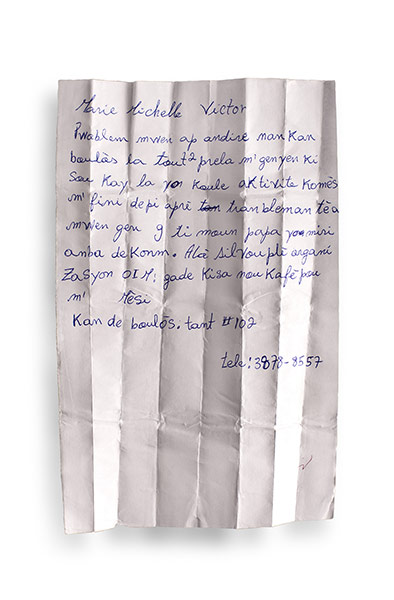 Marie Michelle Victor
Pwoblem mwen ap andire nan kan
boulòs la tout 2 prela m' genyen ki
sou kay la yon koule aktivite komès
m' fini depi aprè tranbleman tè a
mwen gen 9 ti moun papa yo miri
anba dekonm. Alò silvouplè organi
zasyon OIM; gade kisa nou kafè pou
m' Mèsi
Kan de boulòs. tant #102
tele: 3878-8557